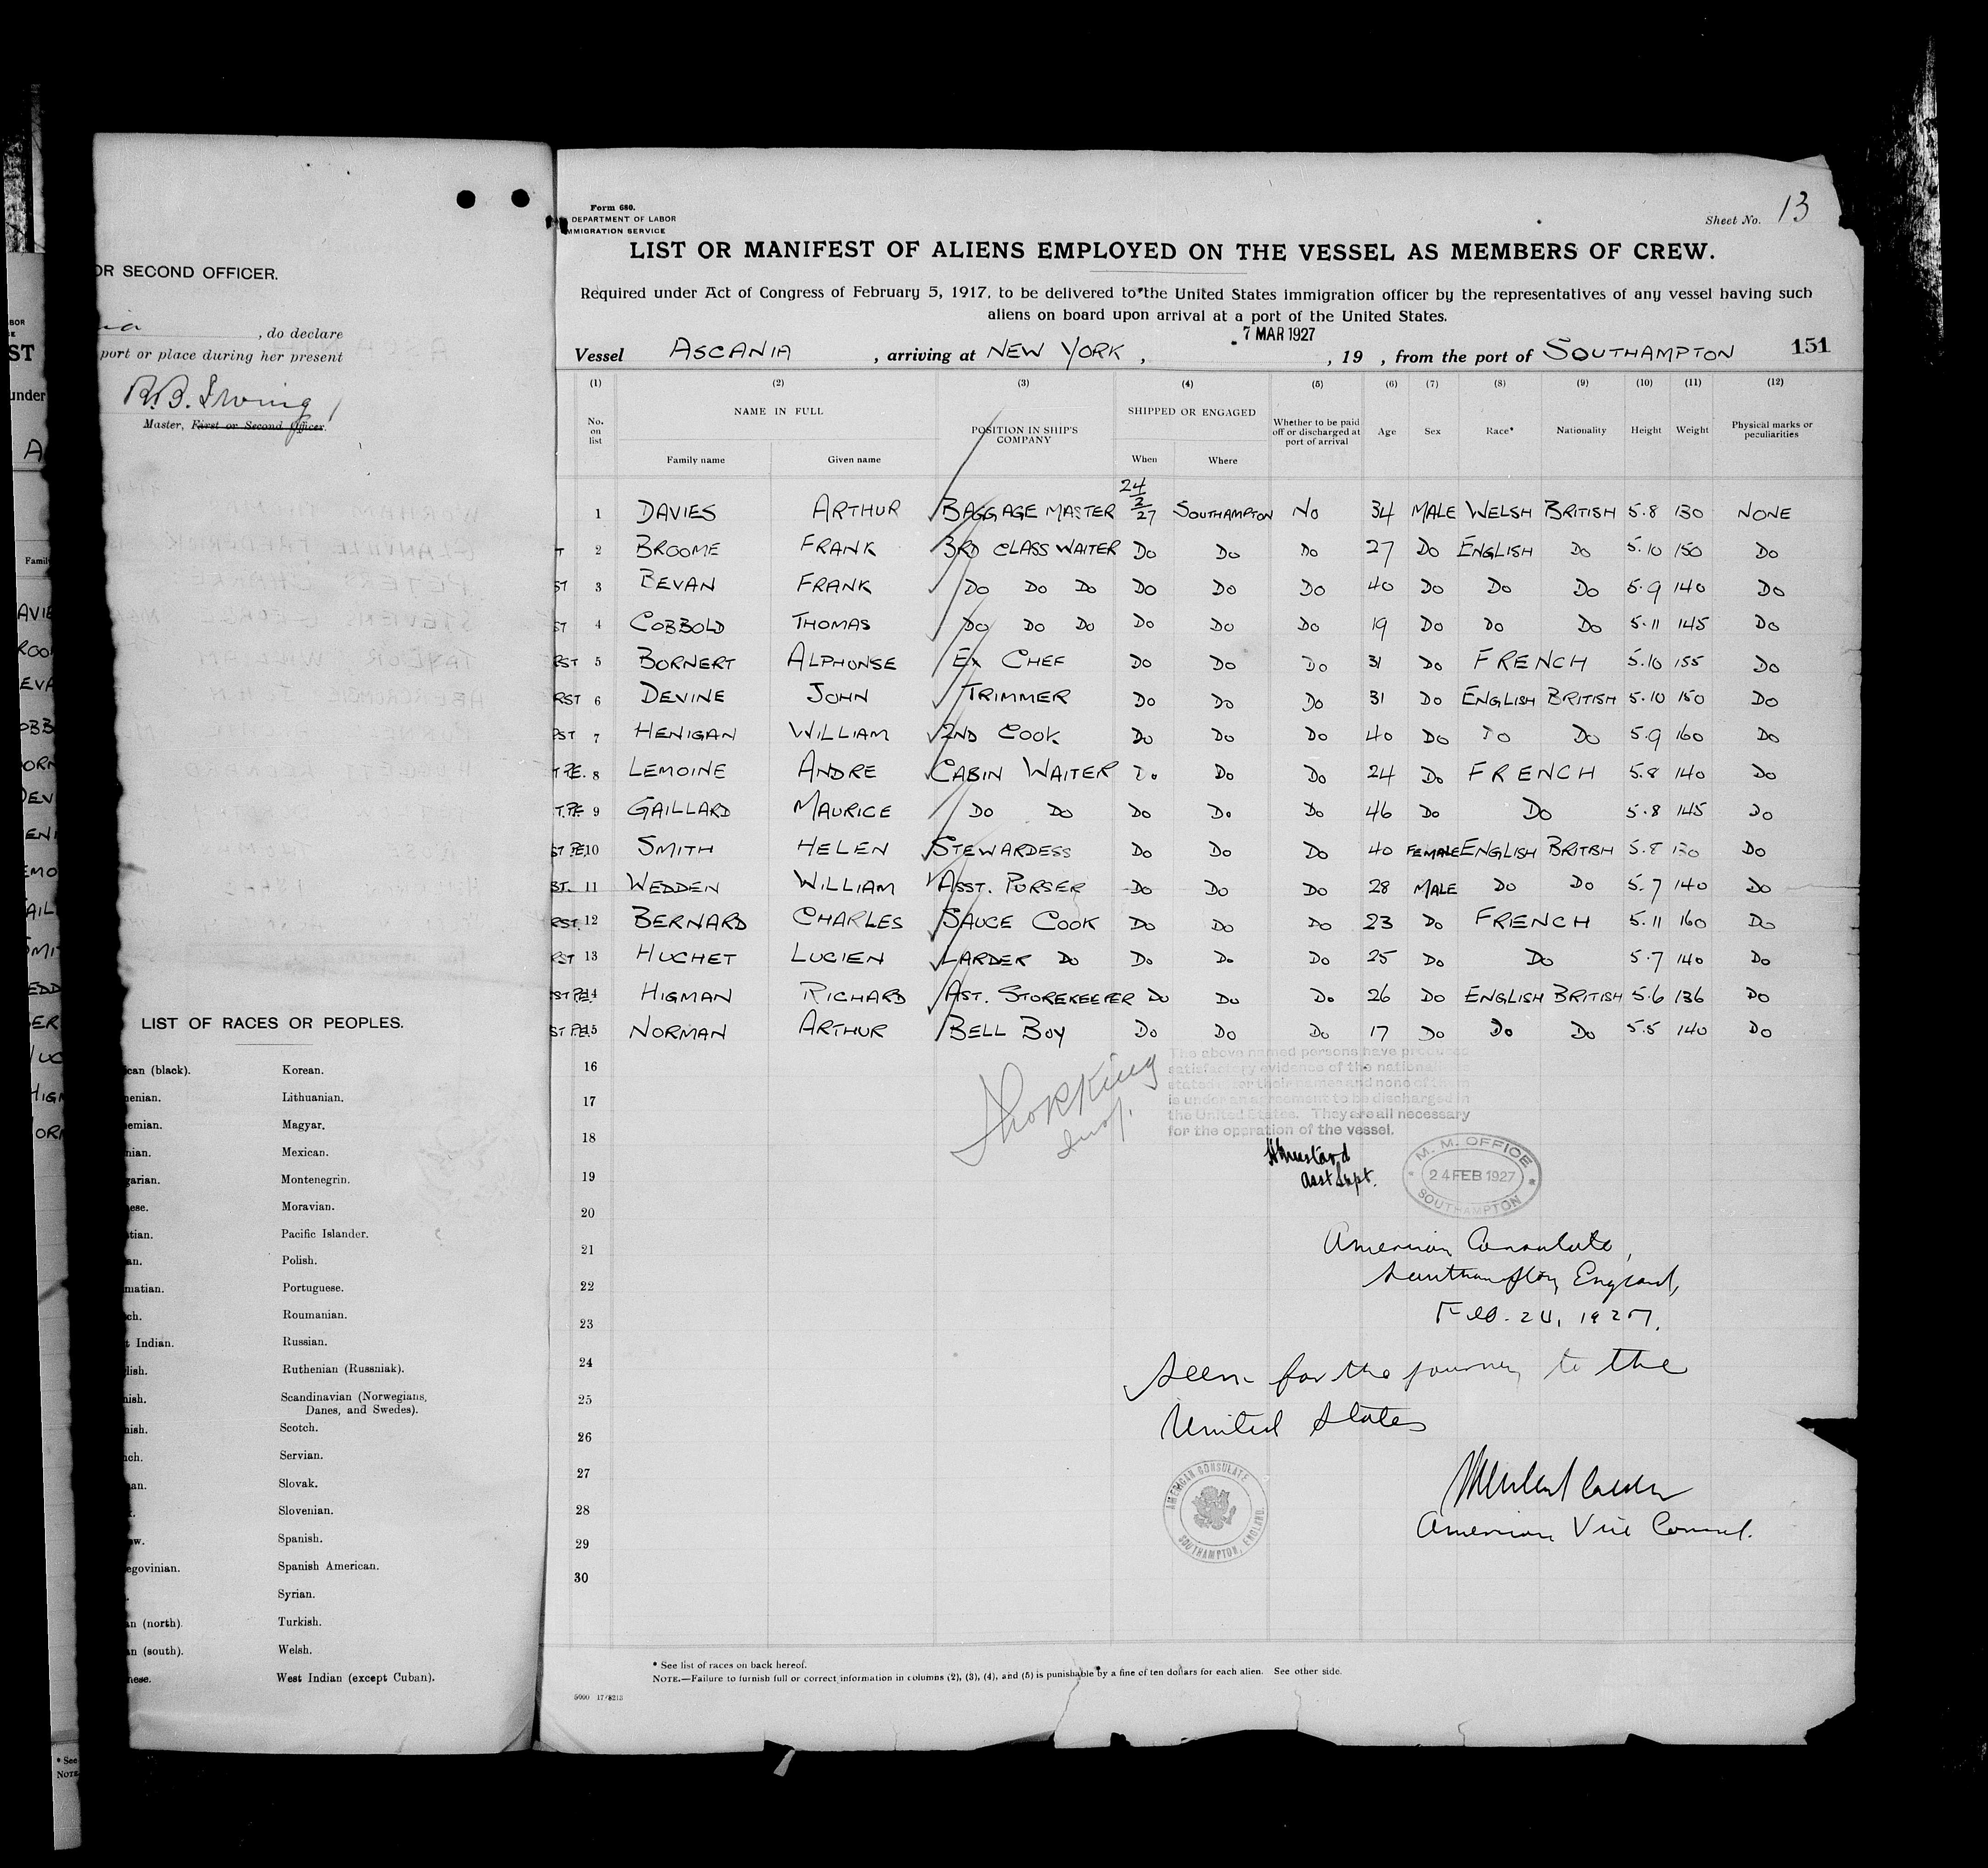 OR SECOND OFFICER.
, do declare
port or place during her present
R.B. Irving
Master, First or Second Officer.
LIST OF RACES OR PEOPLES.
can (black). Korean.
enian. Lithuanian.
emian. Magyar.
nian. Mexican.
garian. Montenegrin.
ese. Moravian.
tian. Pacific Islander.
an. Polish.
matian. Portuguese.
ch. Roumanian.
t Indian. Russian.
lish. Ruthenian (Russniak).
nish. Scandinavian (Norwegians,
Danes, and Swedes).
nish. Scotch.
nch. Servian.
an. Slovak.
Slovenian.
w. Spanish.
egovinian. Spanish American.
Syrian.
n (north). Turkish.
n (south). Welsh.
nese. West Indian (except Cuban).
Form 680.
DEPARTMENT OF LABOR
MMIGRATION SERVICE
Sheet No. 13
LIST OR MANIFEST OF ALIENS EMPLOYED ON THE VESSEL AS MEMBERS OF CREW.
Required under Act of Congress of February 5, 1917, to be delivered to the United States immigration officer by the representatives of any vessel having such
aliens on board upon arrival at a port of the United States.
7 MAR 1927
Vessel ASCANIA , arriving at NEW YORK , , 19 , from the port of SOUTHAMPTON 151
(1) (2) (3) (4) (5) (6) (7) (8) (9) (10) (11) (12)
No. on list NAME IN FULL Family name Given name POSITION IN SHIP'S COMPANY SHIPPED OR ENGAGED When Where Whether to be paid off or discharged at port of arrival Age Sex Race* Nationality Height Weight Physical marks or peculiarities
1 DAVIES ARTHUR BAGGAGE MASTER 24/2/27 SOUTHAMPTON NO 34 MALE WELSH BRITISH 5.8 130 NONE
T 2 BROOME FRANK 3RD CLASS WAITER DO DO DO 27 DO ENGLISH DO 5.10 150 DO
ST 3 BEVAN FRANK DO DO DO DO DO DO 40 DO DO DO 5.9 140 DO
ST 4 COBBOLD THOMAS DO DO DO DO DO DO 19 DO DO DO 5.11 145 DO
RST 5 BORNERT ALPHONSE EX CHEF DO DO DO 31 DO FRENCH 5.10 155 DO
RST 6 DEVINE JOHN TRIMMER DO DO DO 31 DO ENGLISH BRITISH 5.10 150 DO
RST 7 HENIGAN WILLIAM 2ND COOK DO DO DO 40 DO DO DO 5.9 160 DO
T.P.E. 8 LEMOINE ANDRE CABIN WAITER DO DO DO 24 DO FRENCH 5.8 140 DO
T.P.E. 9 GAILLARD MAURICE DO DO DO DO DO 46 DO DO 5.8 145 DO
ST P.E. 10 SMITH HELEN STEWARDESS DO DO DO 40 FEMALE ENGLISH BRITISH 5.8 130 DO
ST. 11 WEDDEN WILLIAM ASST. PURSER DO DO DO 28 MALE DO DO 5.7 140 DO
RST. 12 BERNARD CHARLES SAUCE COOK DO DO DO 23 DO FRENCH 5.11 160 DO
RST 13 HUCHET LUCIEN LARDER DO DO DO DO 25 DO DO 5.7 140 DO
ST P.E. 14 HIGMAN RICHARD AST. STOREKEEPER DO DO DO 26 DO ENGLISH BRITISH 5.6 136 DO
ST P.E. 15 NORMAN ARTHUR BELL BOY DO DO DO 17 DO DO DO 5.5 140 DO
16
17
18
19
20
21
22
23
24
25
26
27
28
29
30
The above named persons have produced
satisfactory evidence of the nationality
stated after their names and none of them
is under an agreement to be discharged in
the United States. They are all necessary
for the operation of the vessel.
Asst Supt.
M. M. OFFICE
24 FEB 1927
SOUTHAMPTON
American Consulate,
Southampton, England,
Feb. 24, 1927.
Seen for the journey to the
United States
American Vice Consul.
AMERICAN CONSULATE
SOUTHAMPTON, ENGLAND.
* See list of races on back hereof.
NOTE.—Failure to furnish full or correct information in columns (2), (3), (4), and (5) is punishable by a fine of ten dollars for each alien. See other side.
5000 17/8213